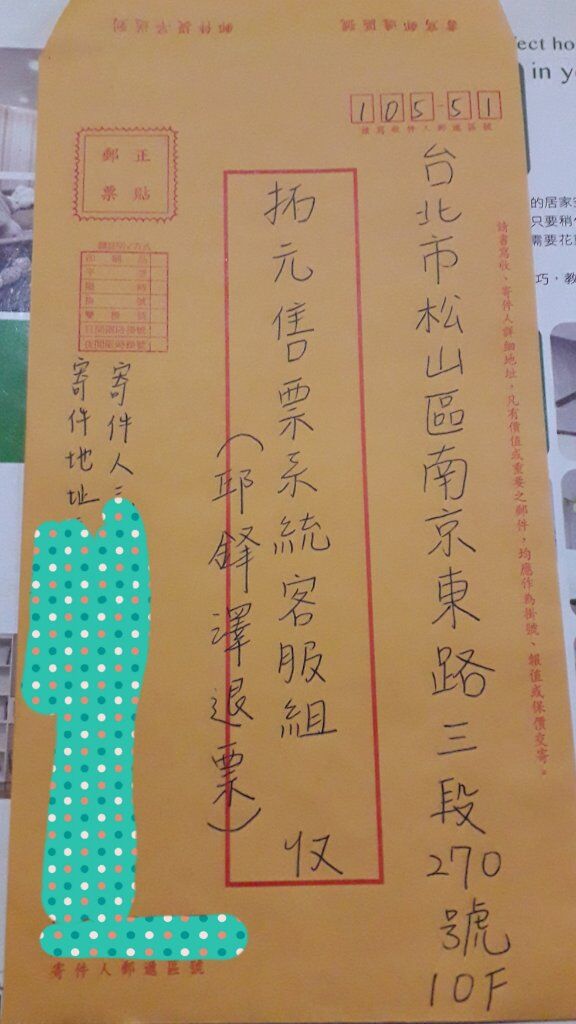 書寫郵遞區號
郵件提早送到
105-51
填寫收件人郵遞區號
請書寫收、寄件人詳細地址,凡有價值或重要之郵件,均應作為掛號、報值或保價交寄。
台北市松山區南京東路三段270號10F
拓元售票系統客服組 收
(邱鋒澤退票)
正貼
郵票
寄件人:
寄件地址:
寄件人郵遞區號
ect ho
in y
的居家
只要稍
需要花
巧,教